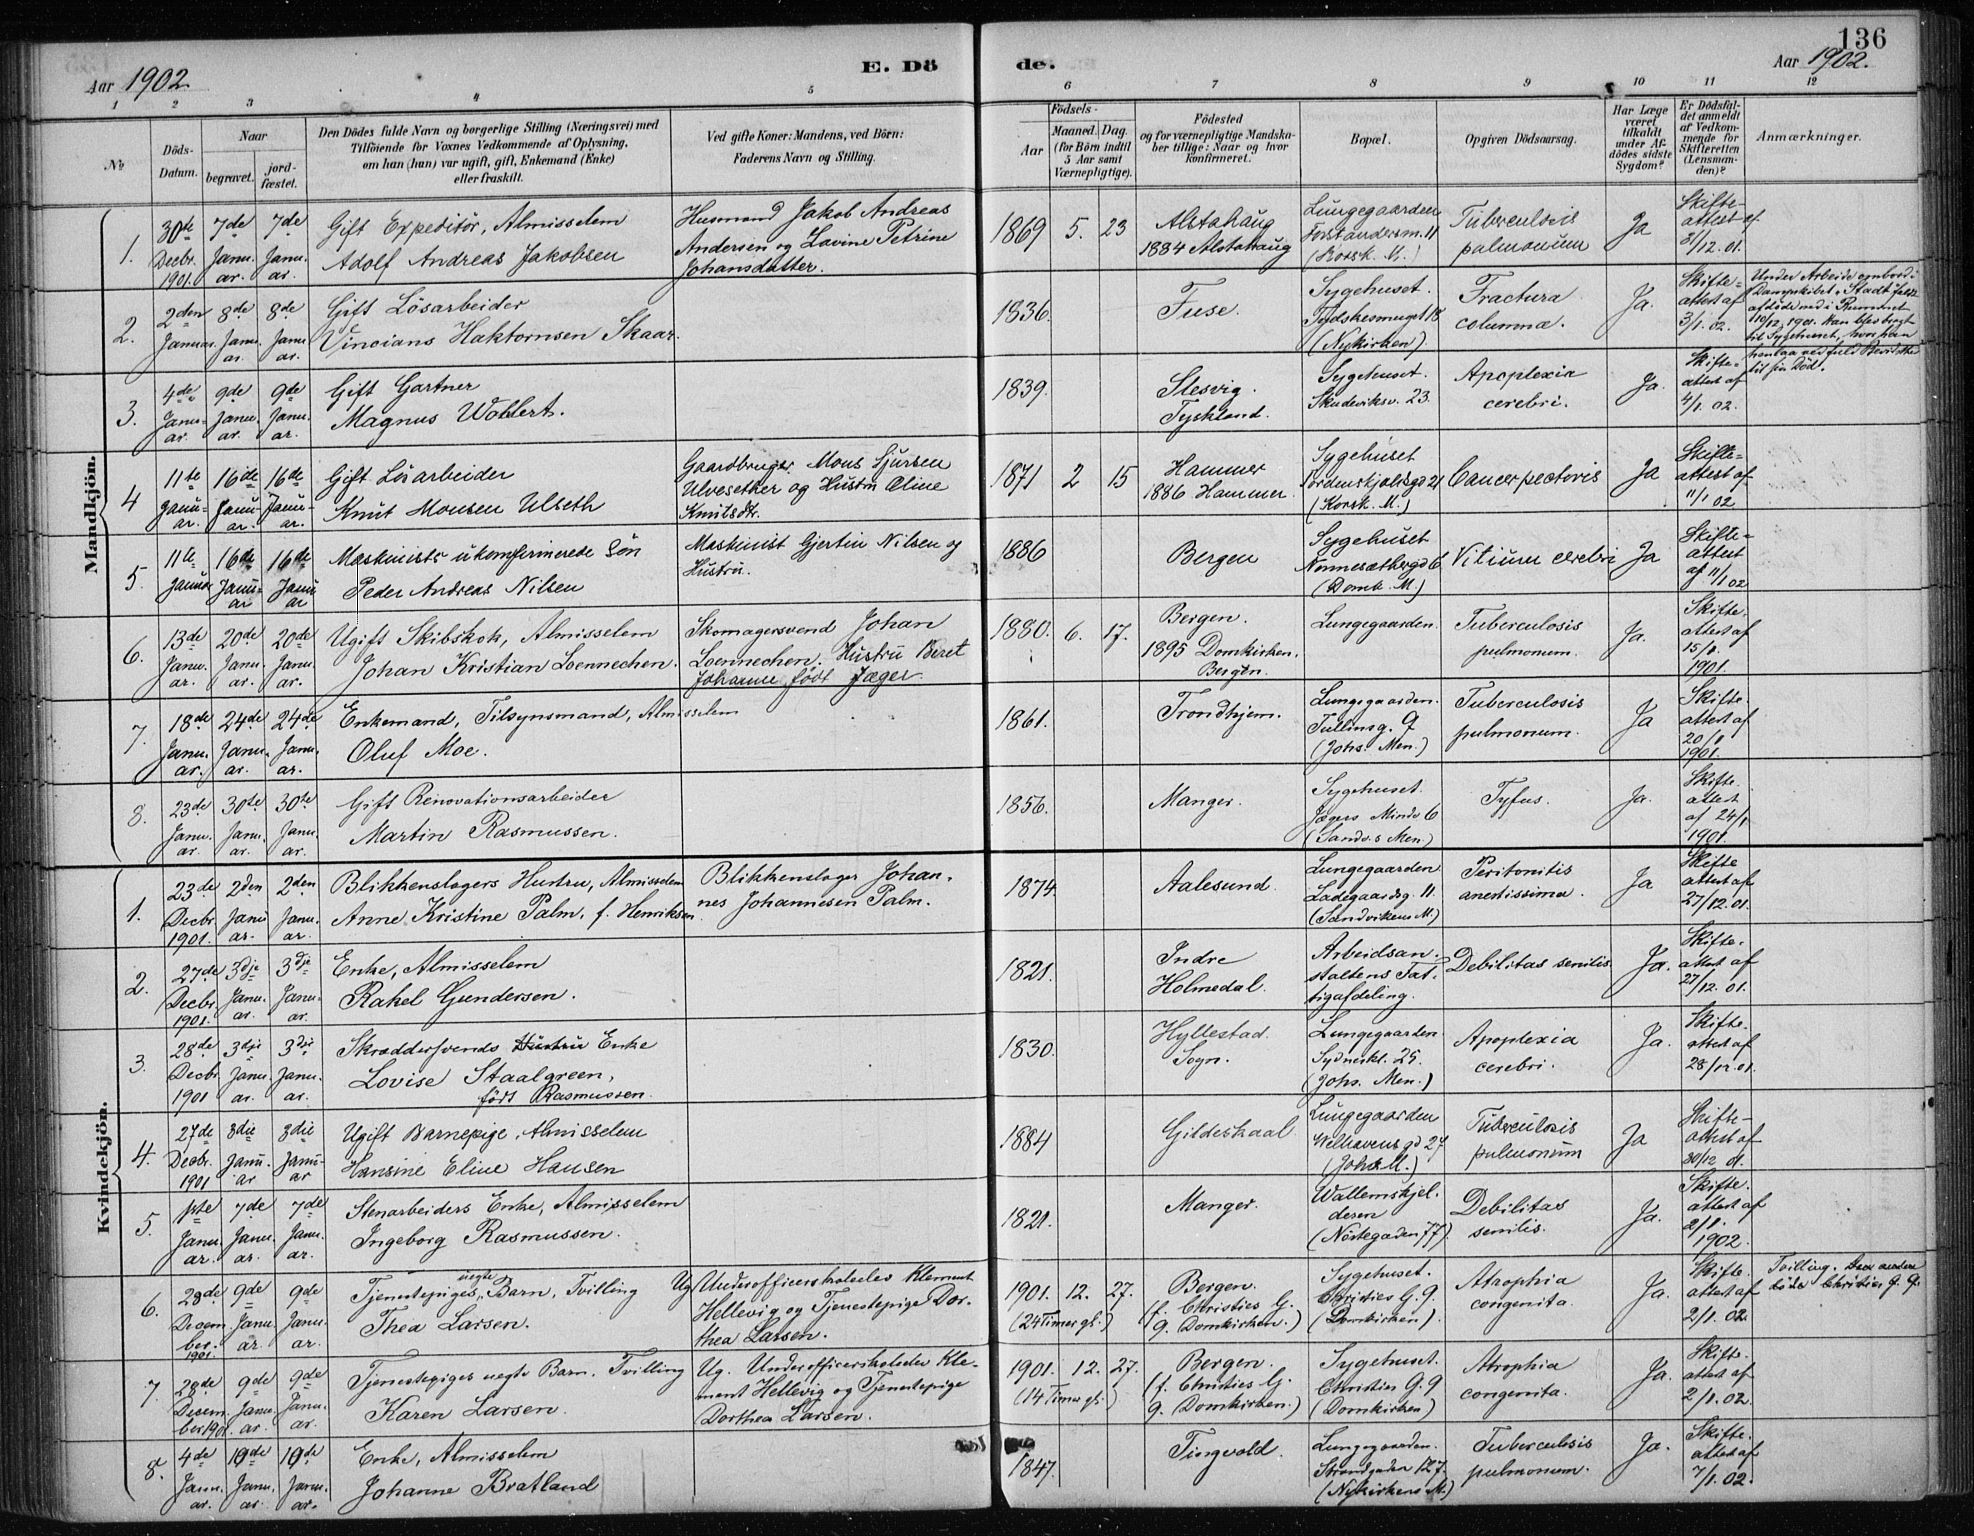 136
Aar 1902.
E. Dö
de.
Aar 1902.
1 2 3 4 5 6 7 8 9 10 11 12
No
Döds-Datum.
Naar
begravet.
jord-fæstet.
Den Dödes fulde Navn og borgerlige Stilling (Næringsvei) med
Tilföiende for Voxnes Vedkommende af Oplysning,
om han (hun) var ugift, gift, Enkemand (Enke)
eller fraskilt.
Ved gifte Koner: Mandens, ved Börn:
Faderens Navn og Stilling.
Födsels-
Aar
Maaned. Dag.
(for Börn indtil
5 Aar samt
Værnepligtige).
Födested
og for værnepligtige Mandska-
ber tillige: Naar og hvor
konfirmeret.
Bopæl.
Opgiven Dödsaarsag.
Har Læge
været
tilkaldt
under Af-
dödes sidste
Sygdom?
Er Dödsfal-
det anmeldt
af Vedkom-
mende for
Skifteretten
(Lensman-
den)?
Anmærkninger.
Mandkjön.
1.
30te Decbr. 1901.
7de Januar.
7de Januar.
Gift Expeditör, Almisselem
Adolf Andreas Jakobsen
Husmand Jakob Andreas
Andersen og Lovine Petrine
Johansdatter.
1869 5. 23
Alstahaug
1884 Alstahaug
Lungegaarden
Forstandersm. 11
(Korsk. M.)
Tuberculosis
pulmonum
Ja
Skifte-
attest af
31/12.01.
2.
2den Januar.
8de Januar.
8de Januar.
Gift Lösarbeider
Vincians Haktornsen Skaar.
1836.
Fuse.
Sygehuset.
Tydskesmuget 18
(Nykirken).
Fractura
columnæ.
Ja.
Skifte-
attest af
3/1.02.
Under Arbeide ombord i
Dampskibet "Stadt" faldt
afdöde ned i Rummet
110/12 1901. Han blev bragt
til Sygehuset, hvor han
henlaa ved fuld Bevidsthe
til sin Död.
3.
4de Januar.
9de Januar.
9de Januar.
Gift Gartner
Magnus Wohlert.
1839.
Slesvig.
Tyskland.
Sygehuset.
Skudeviksv. 23.
Apoplexia
cerebri.
Ja.
Skifte-
attest af
4/1.02.
4
11te Januar.
16de Januar.
16de Januar.
Gift Lösarbeider
Knut Monsen Ulseth
Gaardbruger Mons Sjursen
Ulvesether og Hustru Oline
Knutsdtr.
1871 2 15
Hammer
1886 Hammer
Sygehuset
Tordenskjoldsgd 21
(Korsk. M.)
Cancer pectoris
Ja
Skifte-
attest af
11/1 02
5.
11te Januar
16de Januar
16de Januar
Maskinists ukonfirmerede Sön
Peder Andreas Nilsen
Maskinist Gjertin Nilsen og
Hustru.
1886
Bergen
Sygehuset
Nonnesætergd 6
(Domk. M.)
Vitium cerebri
Ja
Skifte-
attest
af 11/1 02
6.
13de Januar.
20de Januar.
20de Januar.
Ugift Skibskok, Almisselem
Johan Kristian Loennechen.
Skomagersvend Johan
Loennechen. Hustru Beret
Johanne född Jæger
1880. 6. 17.
Bergen.
1895 Domkirken.
Bergen.
Lungegaarden.
Tuberculosis
pulmonum.
Ja.
Skifte.
attest af
15/1.
1901.
7.
18de Januar.
24de Januar.
24de Januar.
Enkemand, Tilsynsmand, Almisselem
Oluf Moe.
1861.
Trondhjem.
Lungegaarden.
Tullinsg. 9
(Johs. Men.)
Tuberculosis
pulmonum.
Ja
Skifte.
attest af
20/1
1901.
8.
23de Januar.
30te Januar.
30te Januar.
Gift Renovationsarbeider
Martin Rasmussen.
1856.
Manger.
Sygehuset.
Jægers Minde 6
(Sandvs Men.)
Tyfus.
Ja.
Skifte.
attest
af 24/1
1901.
Kvindekjön.
1.
23de Decbr. 1901.
2den Januar.
2den Januar.
Blikkenslagers Hustru, Almisselem
Anne Kristine Palm, f. Henriksen
Blikkenslager Johan-
nes Johannesen Palm.
1874.
Aalesund.
Lungegaarden
Ladegaardsg. 11.
(Sandvikens M.)
Peritonitis
Ja
Skifte
attest af
27/12.01.
2.
27de Decbr. 1901.
3dje Januar.
3dje Januar.
Enke, Almisselem
Rakel Gundersen.
1821.
Indre
Holmedal.
Arbeidsan-
staltens Fat-
tigafdeling.
Debilitas senilis
Ja.
Skifte-
attest af
27/12.01.
3.
28de Decbr. 1901
3dje Januar.
3dje Januar.
Skræddersvends Hustru Enke
Lovise Staalgreen,
född Rasmussen.
1830.
Hyllestad.
Sogn.
Lungegaarden.
Sydneskl. 25.
(Johs. Men.)
Apoplexia
cerebri.
Ja.
Skifte.
attest af
28/12.01.
4.
27de Decbr. 1901
3die Januar
3die Januar
Ugift Barnepige, Almisselem
Hansine Eline Hansen
1884
Gildeskaal
Lungegaarden
Welhavens gd 27
(Johs M.)
Tuberculosis
pulmonum
Ja
Skifte-
attest af
30/12 01.
5.
1ste Januar.
7de Januar.
7de Januar.
Stenarbeiders Enke, Almisselem
Ingeborg Rasmussen.
1821.
Manger.
Wallemskjel-
deren
(Nöstegaden 77)
Debilitas
senilis.
Ja.
Skifte.
attest af
2/1.
1902.
6.
28de December. 1901.
9de Januar.
9de Januar.
Tjenestepiges uegte Barn, Tvilling
Thea Larsen.
Ug Underofficersholedev Klement
Hellevig og Tjenestepige Dor-
thea Larsen.
1901. 12. 27.
(24 Timer gl.)
Bergen.
(f. Christies G.
9. Domkirken.)
Sygehuset.
Christies G. 9
(Domkirken).
Atrophia
congenita.
Ja.
Skifte
attest af
2/1.02.
Tvilling. Den anden
döde Christies G. 9.
7.
28de December 1901.
9de Januar.
9de Januar.
Tjenestepiges uegte Barn. Tvilling
Karen Larsen.
Ug. Underofficersholedev Kle-
ment Hellevig og Tjenestepige
Dorthea Larsen.
1901. 12. 27.
(14 Timer gl.)
Bergen.
(f. Christies G.
9. Domkirken.)
Sygehuset.
Christies G. 9
(Domkirken)
Atrophia
congenita.
Ja.
Skifte.
attest af
2/1.02.
8.
4de Januar.
10de Januar.
10de Januar.
Enke, Almisselem
Johanne Bratland
1847.
Tingvold.
Lungegaarden.
Strandgaden 127.
(Nykirkens M.)
Tuberculosis
pulmonum.
Ja.
Skifte.
attest af
7/1.02.